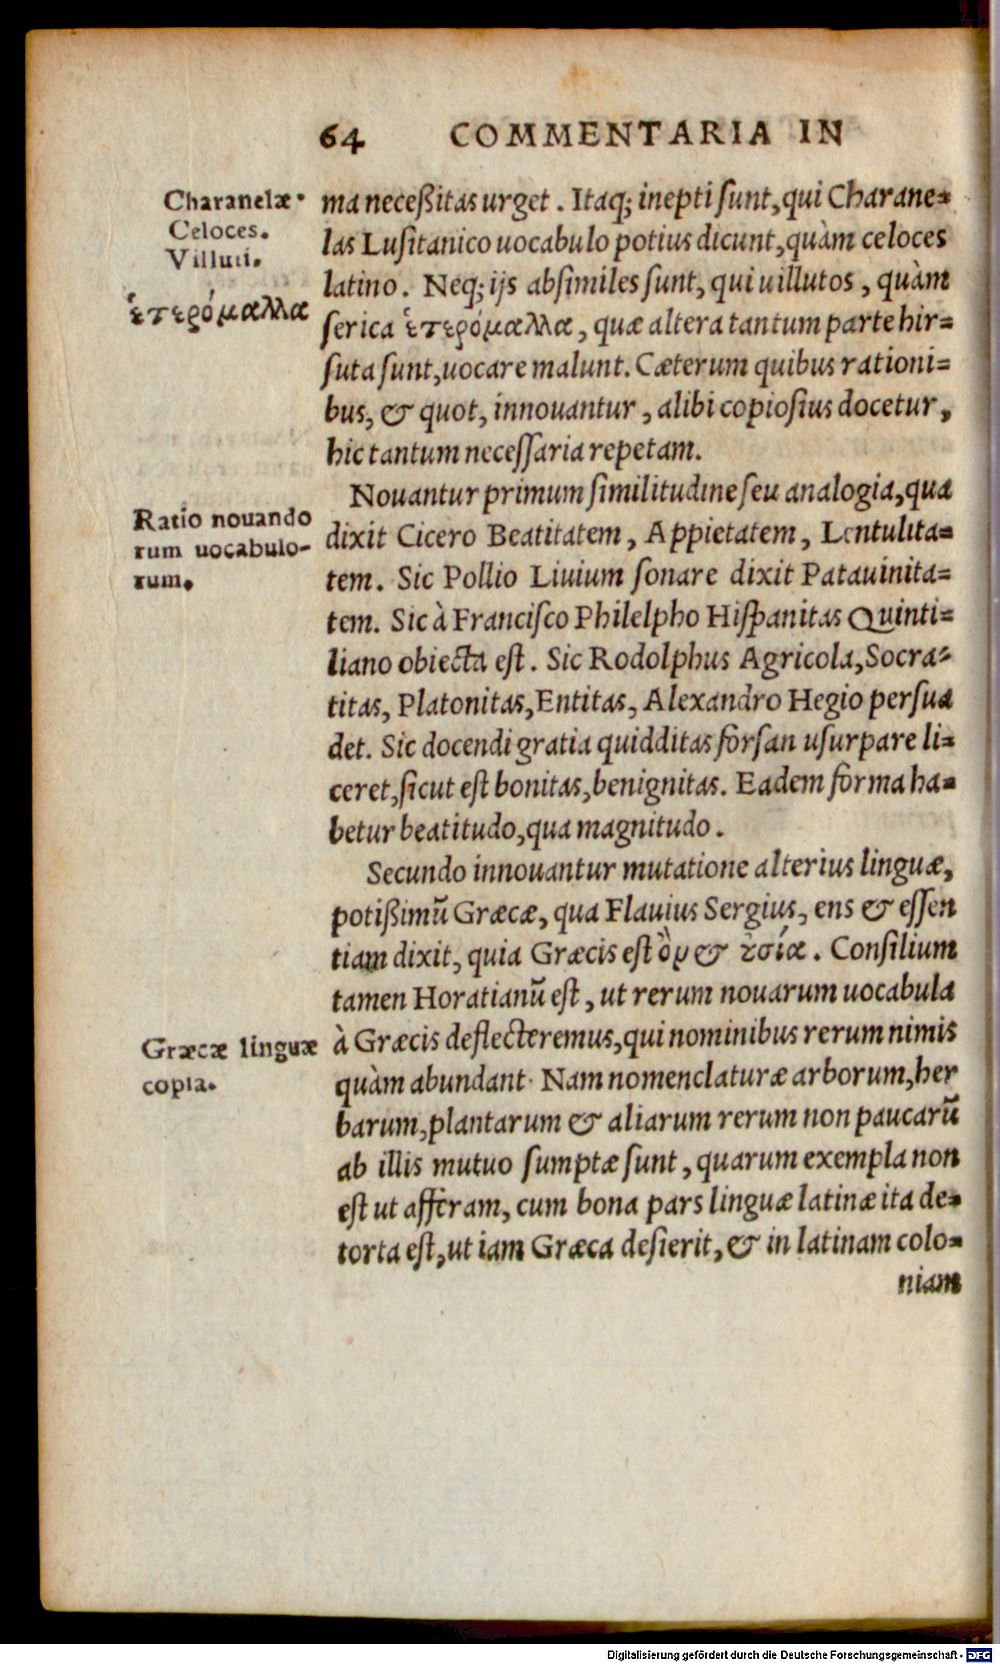 64 COMMENTARIA IN
Charanelæ.
Celoces.
Villuti.
ἑτερόμαλλα
ma neceßitas urget. Itaq; inepti sunt, qui Charane=
las Lusitanico uocabulo potius dicunt, quàm celoces
latino. Neq; ijs absimiles sunt, qui uillutos, quàm
serica ἑτερόμαλλα, quæ altera tantum parte hir=
suta sunt, uocare malunt. Cæterum quibus rationi=
bus, & quot, innouantur, alibi copiosius docetur,
hic tantum necessaria repetam.
Ratio nouando
rum uocabulo-
rum.
Nouantur primum similitudine seu analogia, qua
dixit Cicero Beatitatem, Appietatem, Lentulita=
tem. Sic Pollio Liuium sonare dixit Patauinita=
tem. Sic à Francisco Philelpho Hispanitas Quinti=
liano obiecta est. Sic Rodolphus Agricola, Socra=
titas, Platonitas, Entitas, Alexandro Hegio persua
det. Sic docendi gratia quidditas forsan usurpare li=
ceret, sicut est bonitas, benignitas. Eadem forma ha=
betur beatitudo, qua magnitudo.
Secundo innouantur mutatione alterius linguæ,
potißimũ Græcæ, qua Flauius Sergius, ens & essen
tiam dixit, quia Græcis est ὂν & ȣ̓σία. Consilium
tamen Horatianũ est, ut rerum nouarum uocabula
Græcæ linguæ
copia.
à Græcis deflecteremus, qui nominibus rerum nimis
quàm abundant. Nam nomenclaturæ arborum, her
barum, plantarum & aliarum rerum non paucarũ
ab illis mutuo sumptæ sunt, quarum exempla non
est ut afferam, cum bona pars linguæ latinæ ita de=
torta est, ut iam Græca desierit, & in latinam colo=
niam
Digitalisierung gefördert durch die Deutsche Forschungsgemeinschaft - DFG